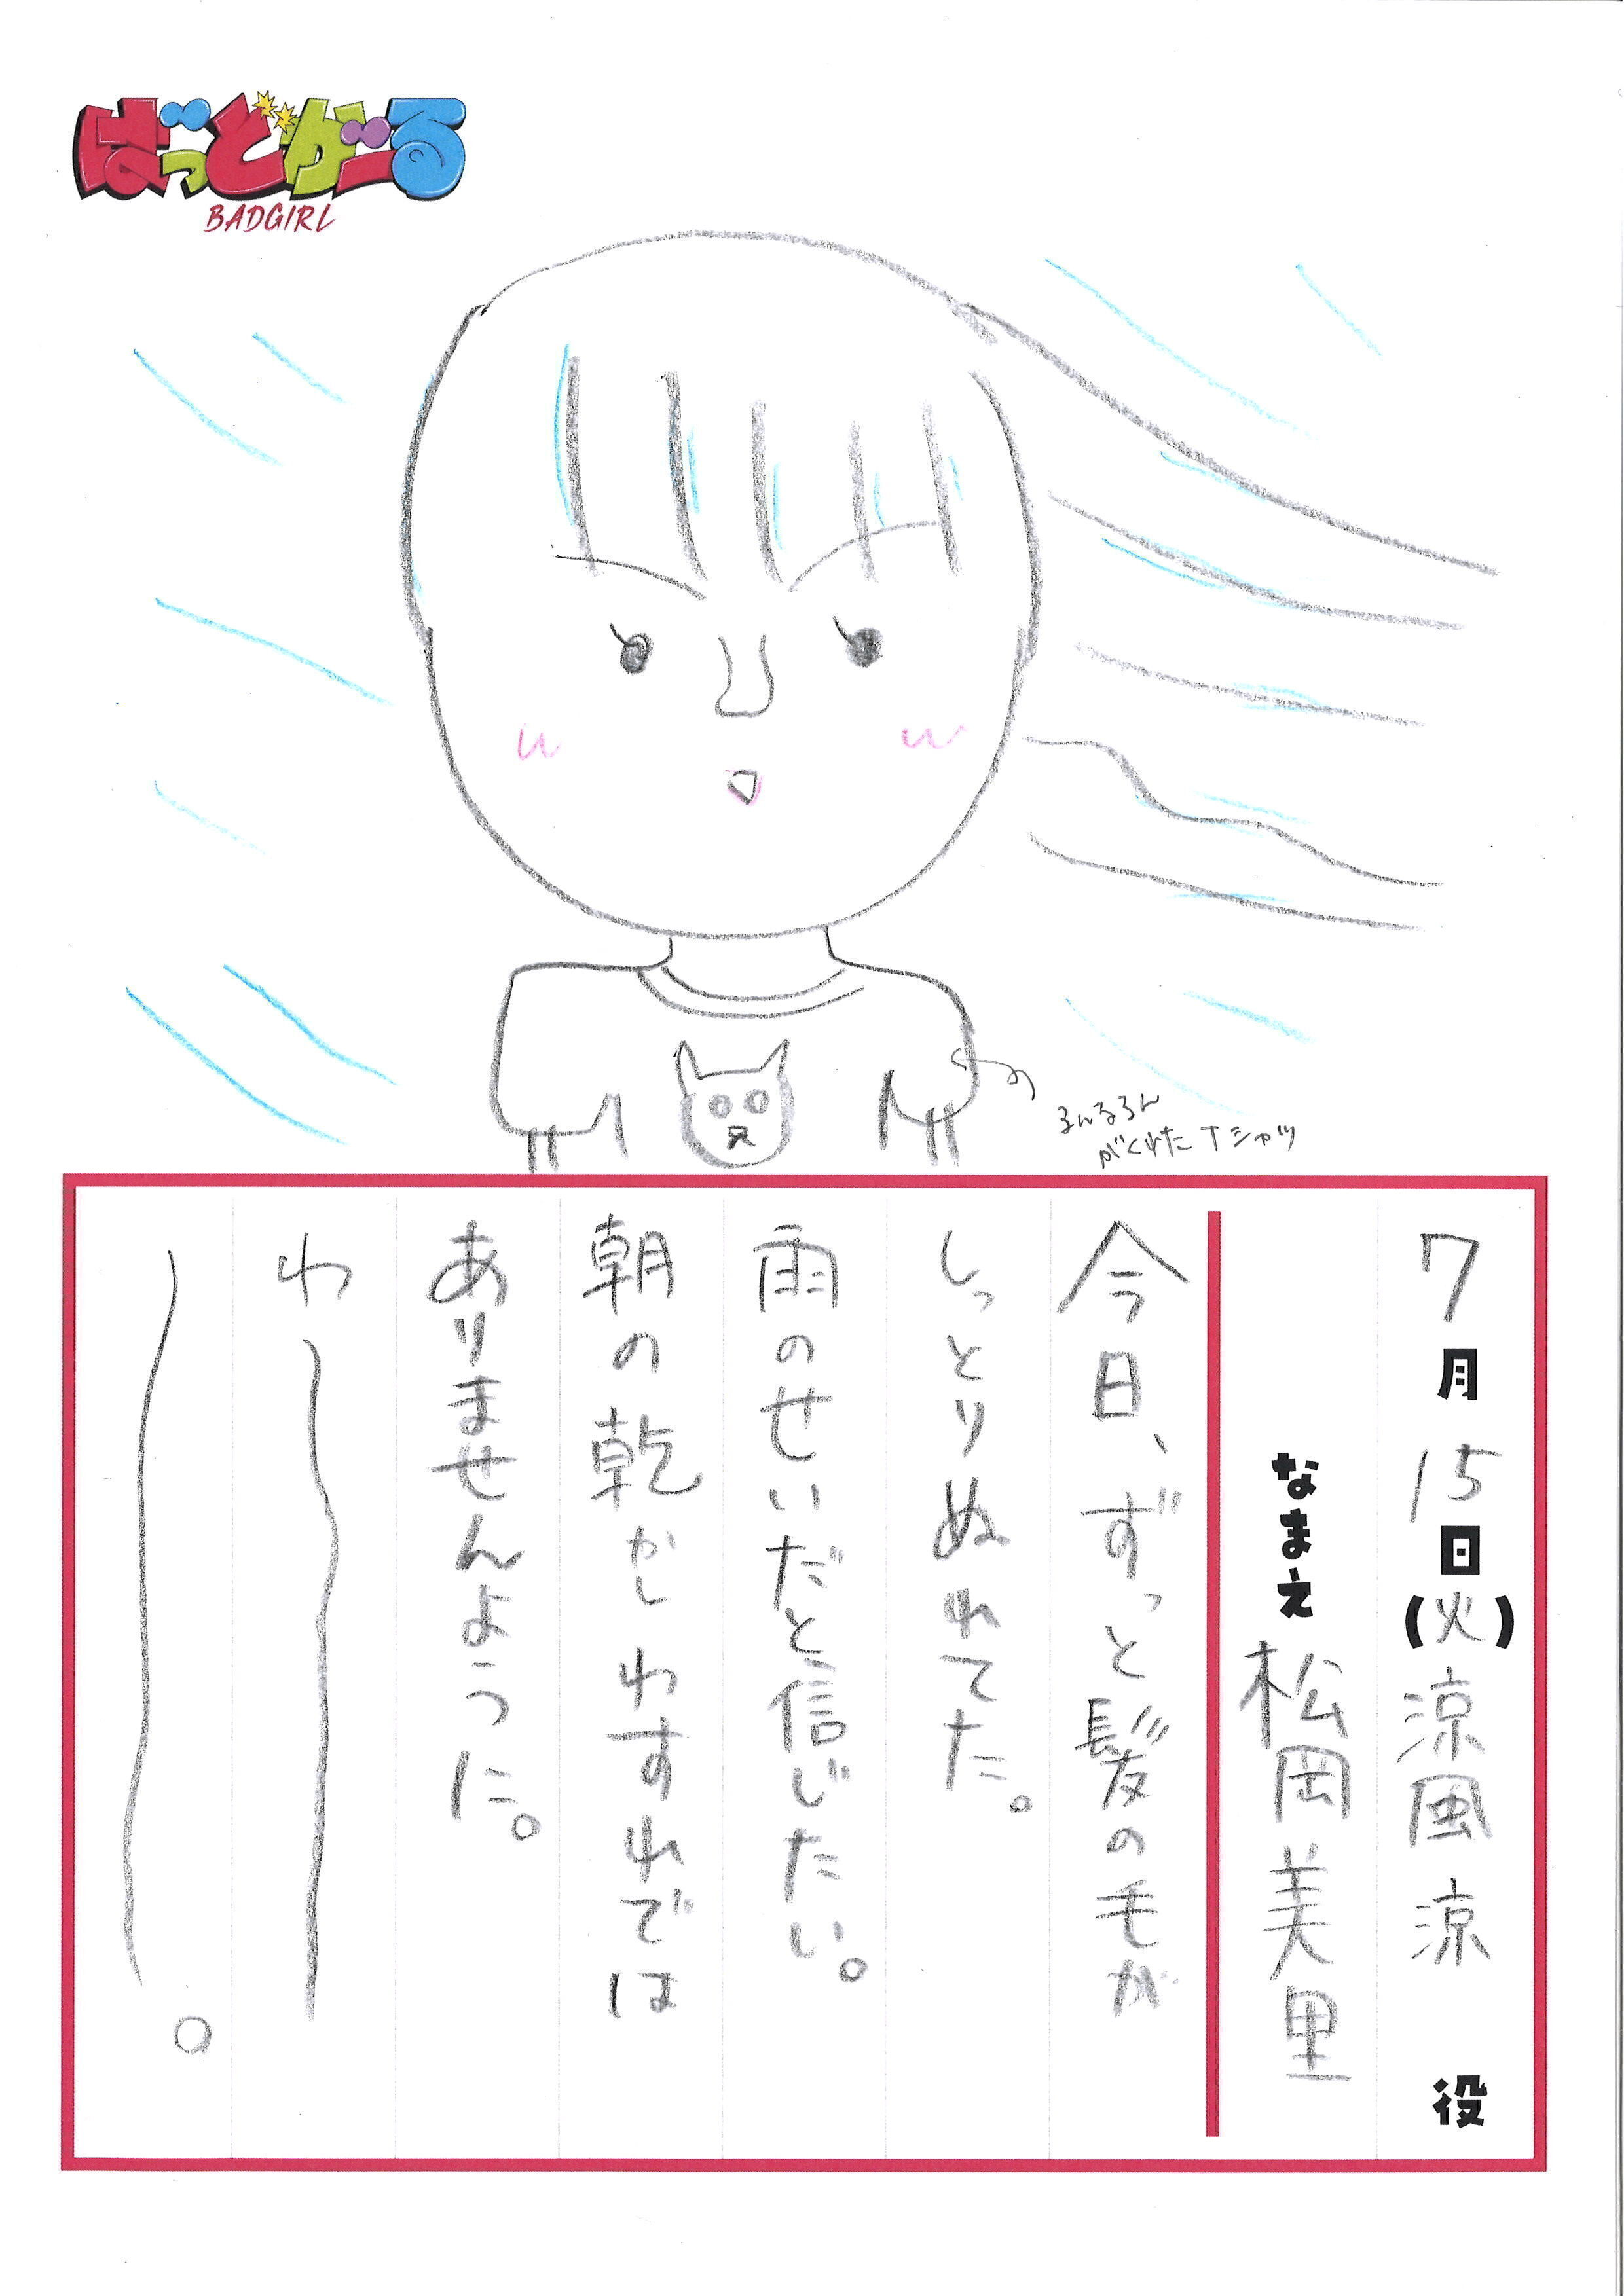 ばっどがーる
BADGIRL
るんるろん
がくれたTシャツ
7月15日(火)涼風 涼 役
なまえ 松岡美里
今日、ずっと髪の毛が
しっとりぬれてた。
雨のせいだと信じたい。
朝の乾かしわすれでは
ありませんように。
わー
ー。